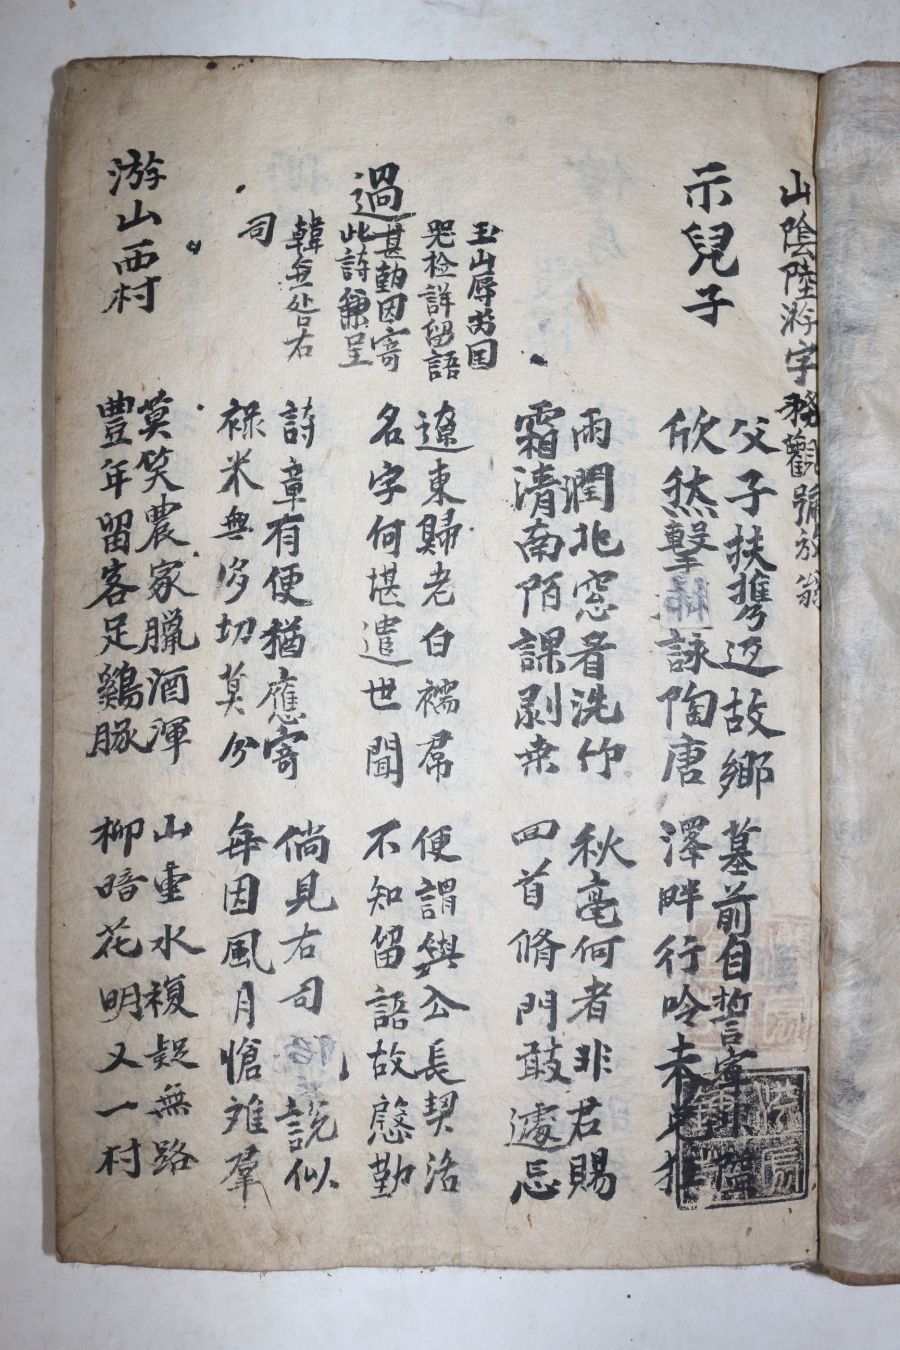 山陰陸游字務觀號放翁
示兒子
父子扶携返故鄉
欣然擊
詠陶唐
墓前自誓寧
澤畔行吟未
雨潤北窓看洗竹
霜清南陌課剝桑
秋毫何者非君賜
回首脩門敢遽忘
過
玉山辱
檢詳留語
甚勤因寄
此詩兼呈
韓無咎右
司
遼東歸老白襦帬
名字何堪遣世聞
便謂與公長契活
不知留語故慇勤
詩章有便猶應寄
祿米無多切莫分
倘見右司
說似
每因風月愴離羣
游山西村
莫笑農家臘酒渾
豊年留客足鷄豚
山重水複疑無路
柳暗花明又一村